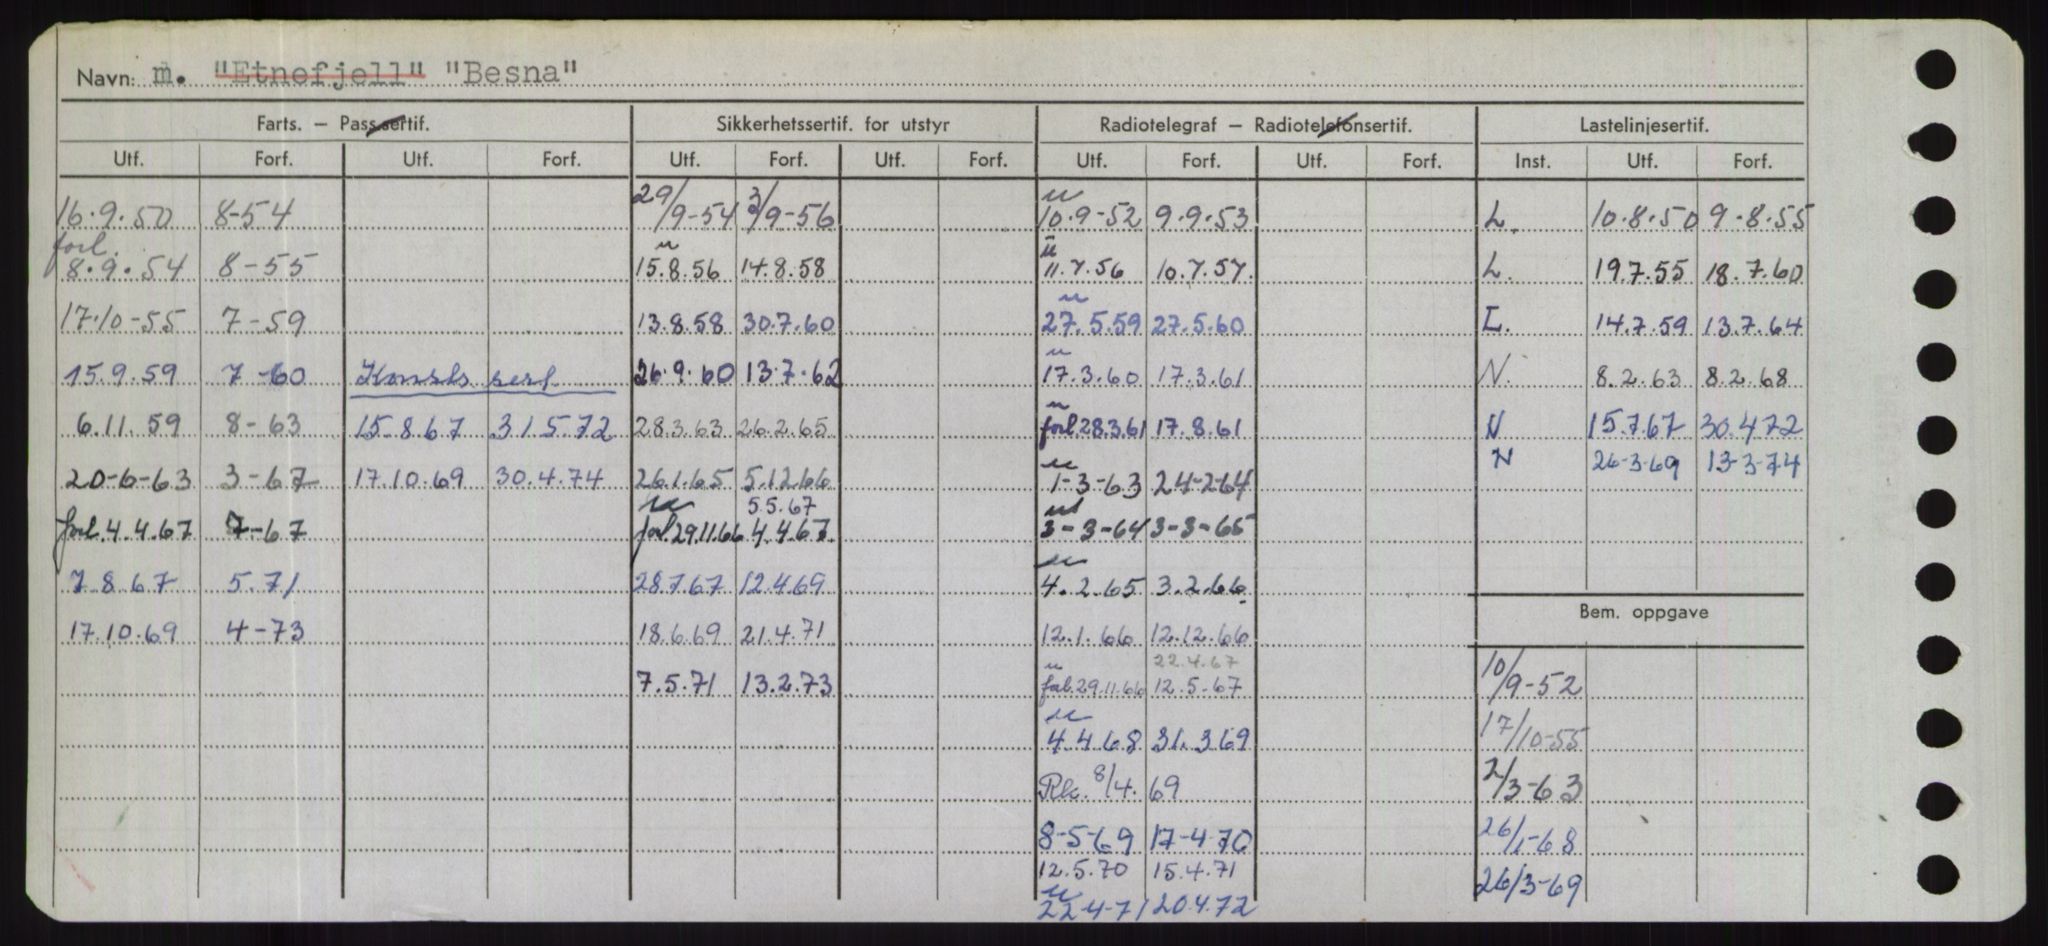 Navn: m. "Etnefjell" "Besna"
Farts. – Passertif. Sikkerhetssertif. for utstyr Radiotelegraf – Radiotelefonsertif. Lastelinjesertif.
Utf. Forf. Utf. Forf. Utf. Forf. Utf. Forf. Utf. Forf. Utf. Forf. Inst. Utf. Forf.
16.9.50 8-54 29/9-54 3/9-56 10.9-52 9.9.53 L. 10.8.50 9.8.55
forl.
8.9.54 8-55 15.8.56 14.8.58 11.7.56 10.7.57. L. 19.7.55 18.7.60
17.10-55 7-59 13.8.58 30.7.60 27.5.59 27.5.60 L. 14.7.59 13.7.64
15.9.59 7-60 Konstr. sert 26.9.60 13.7.62 17.3.60 17.3.61 N. 8.2.63 8.2.68
6.11.59 8-63 15.8.67 31.5.72 28.3.63 26.2.65 forl. 28.3.61 17.8.61 N 15.7.67 30.4.72
20-6-63 3-67 17.10.69 30.4.74 26.1.65 5.12.66 1-3-63 24-2-64 N 26-3-69 13-3-74
5.5.67
forl. 4.4.67 7-67 forl. 29.11.66 4.4.67. 3-3-64 3-3-65
7.8.67 5.71 28.7.67 12.4.69 4.2.65 3.2.66
Bem. oppgave
17.10.69 4-73 18.6.69 21.4.71 12.1.66 12.12.66
22.4.67
7.5.71 13.2.73 forl. 29.11.66 12.5.67 10/9-52
4.4.68 31.3.69 17/10-55
Rk. 8/4.69 2/3-63
8-5-69 17-4-70 26/1-68
12.5.70 15.4.71
26/3-69
22-4-71 20.4.72